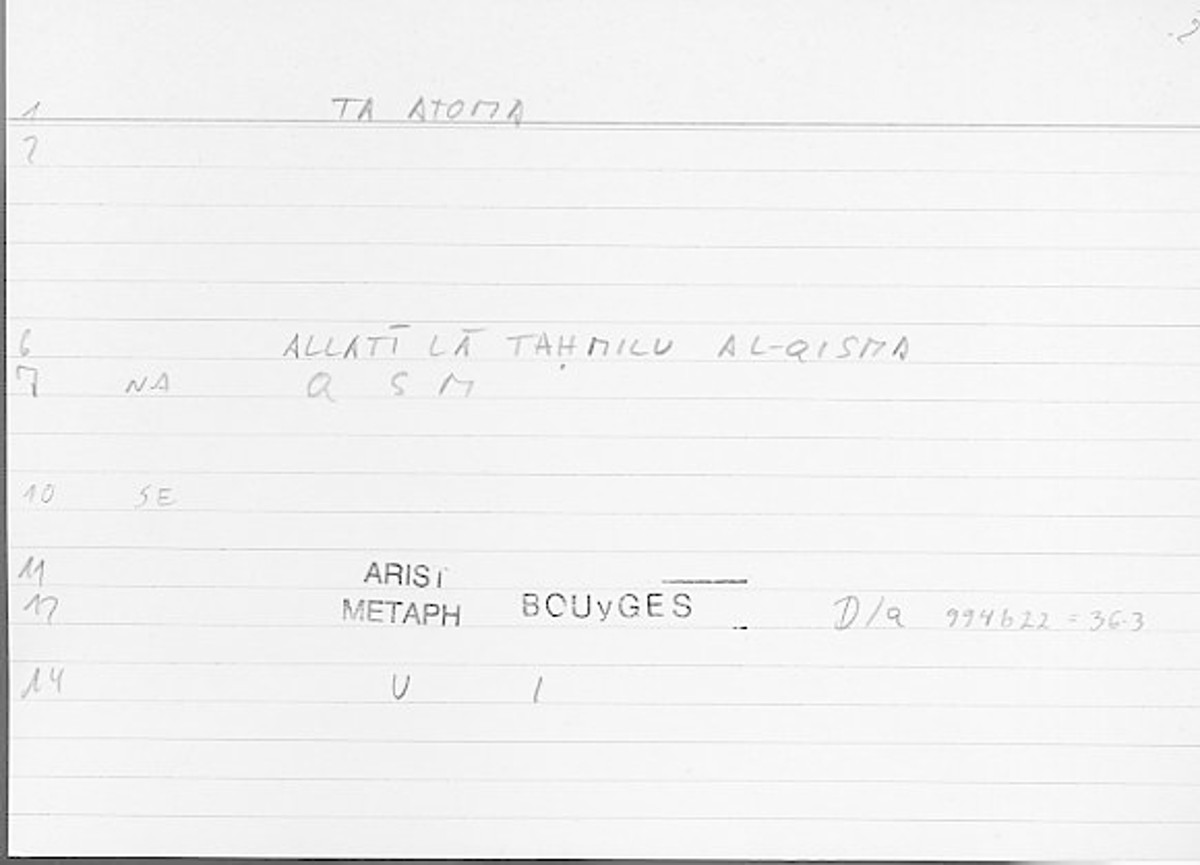 1 TA ATOMA
2
6 ALLATĪ LĀ TAḤMILU AL-QISMA
7 NA Q S M
10 SE
11 ARIST
12 METAPH BOUyGES D/a 994b22 = 36.3
14 U I